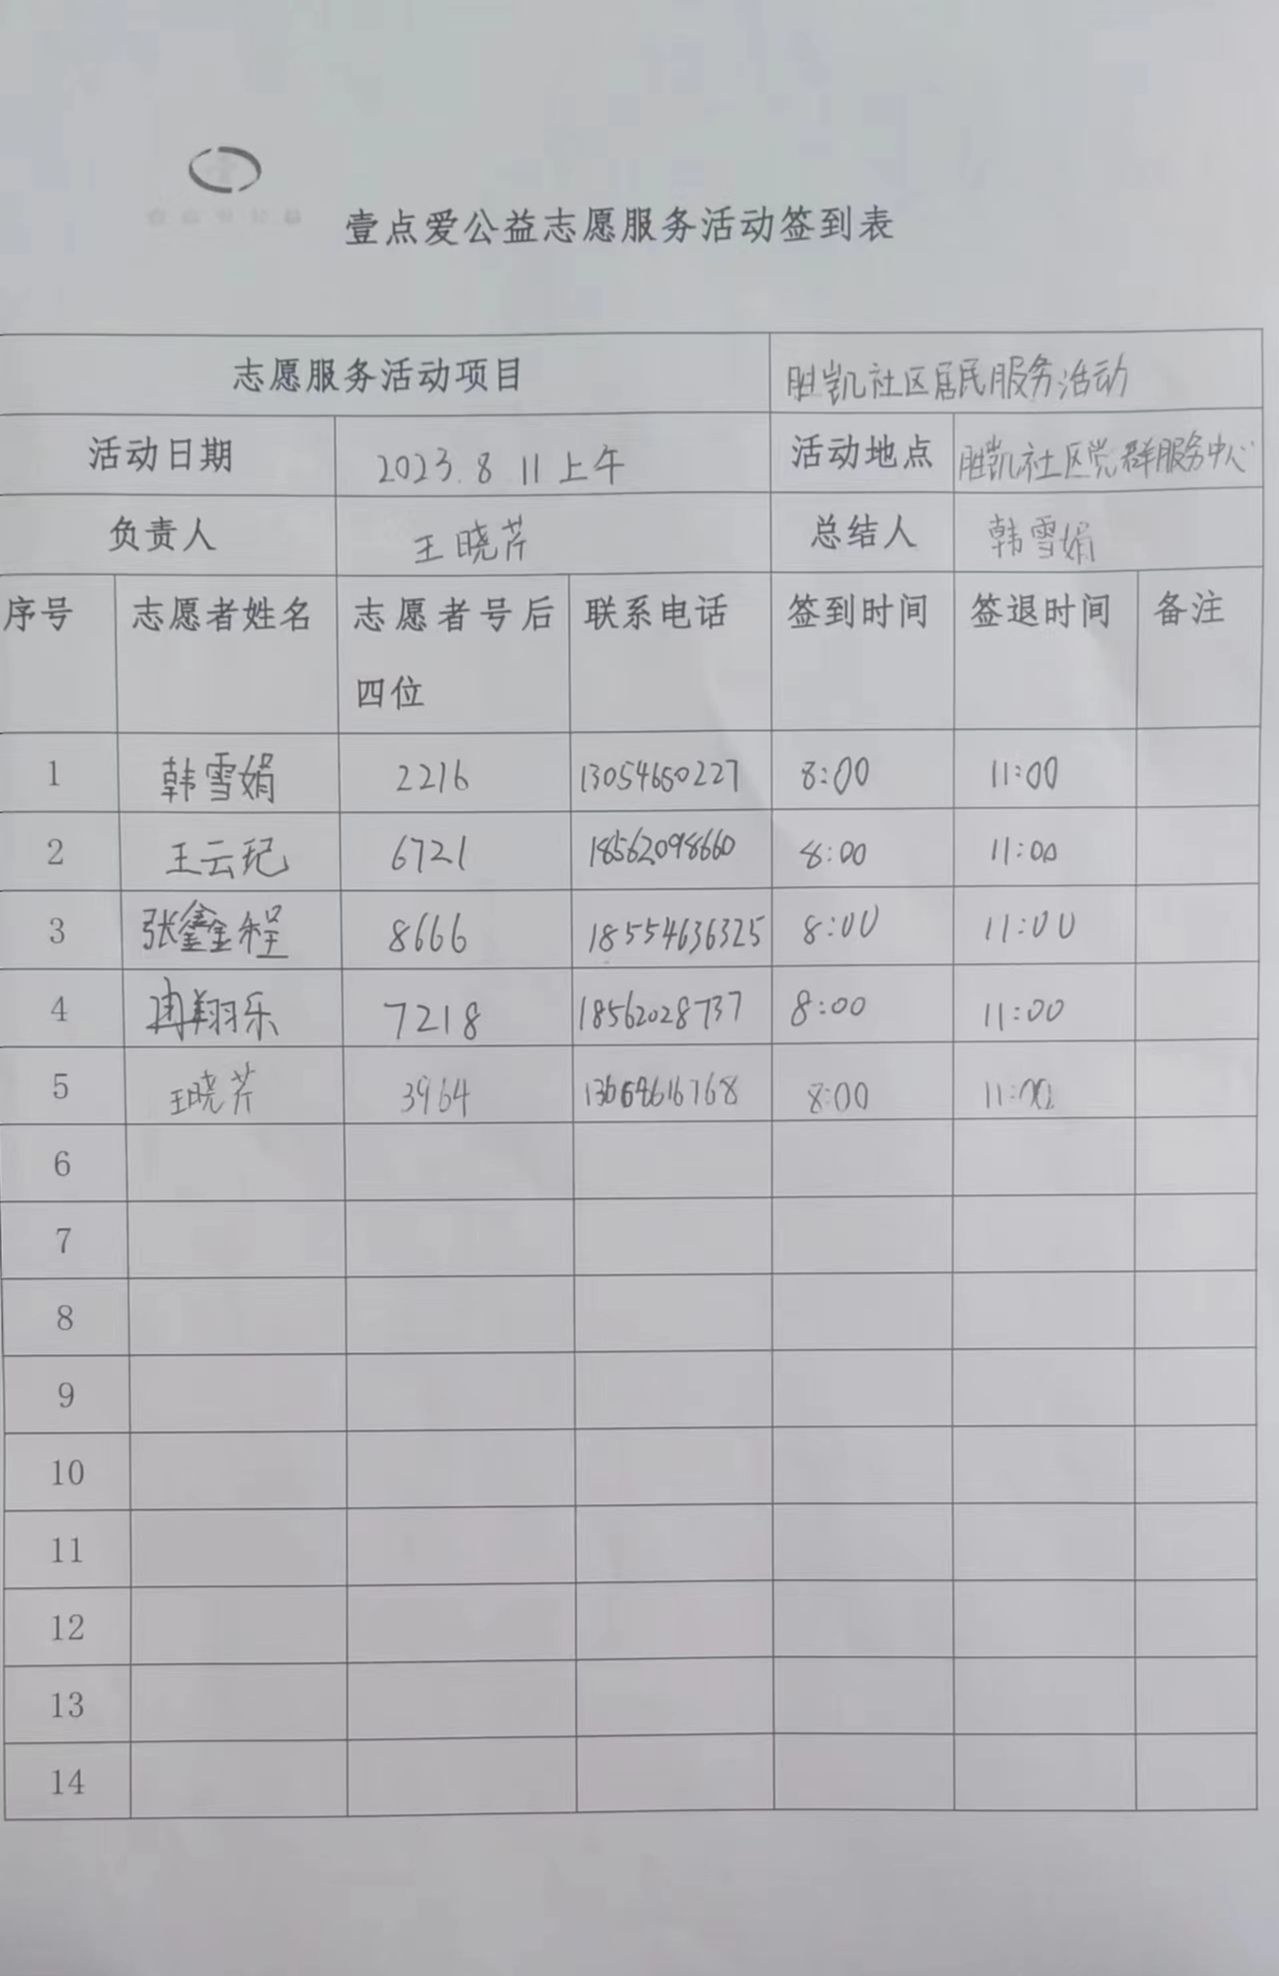 壹点爱公益志愿服务活动签到表
志愿服务活动项目 胜凯社区居民服务活动
活动日期 2023.8 11上午 活动地点 胜凯社区党群服务中心
负责人 王晓芹 总结人 韩雪娟
序号 志愿者姓名 志愿者号后 联系电话 签到时间 签退时间 备注
四位
1 韩雪娟 2216 13054650227 8:00 11:00
2 王云玘 6721 18562098660 8:00 11:00
3 张鑫程 8666 18554636325 8:00 11:00
4 冉翔乐 7218 18562028737 8:00 11:00
5 王晓芹 3964 8:00 11:00
6
7
8
9
10
11
12
13
14